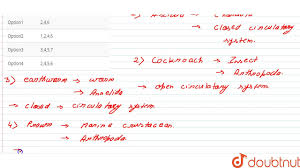 Option1 2,4,6
Option2 1,2,4,6
Option3 3,4,5,7
Option4 2,4,5,6
→ closed circulatory system.
2) Cockroach → Insect
→ Arthropoda.
→ open circulatory system
3) earthworm → worm
→ Annelida
→ closed circulatory system.
4) Prawn → marine crustacean.
→ Arthropoda.
doubtnut